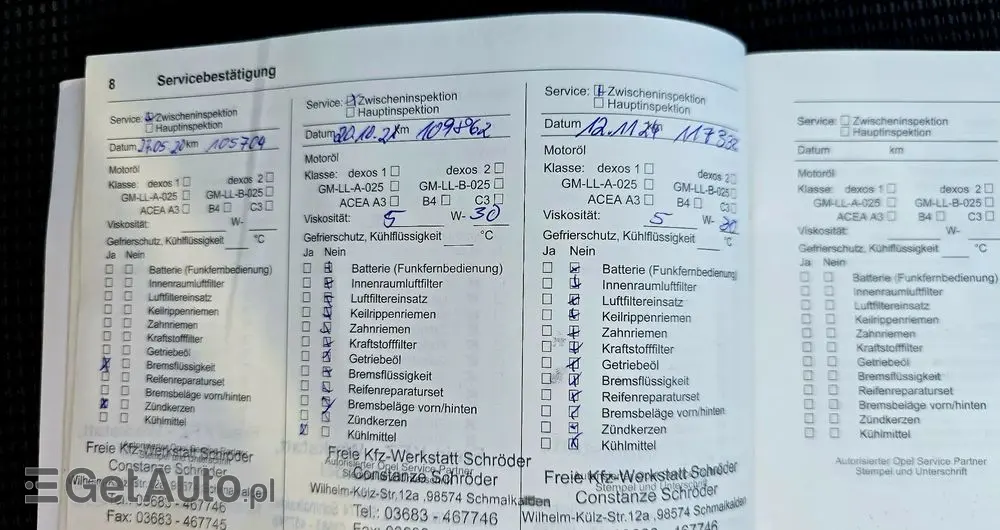 8 Servicebestätigung
Service: Zwischeninspektion
Hauptinspektion
Datum 27.05.20 km 105704
Motoröl
Klasse: dexos 1 dexos 2
GM-LL-A-025 GM-LL-B-025
ACEA A3 B4 C3
Viskosität: W-
Gefrierschutz, Kühlflüssigkeit °C
Ja Nein
Batterie (Funkfernbedienung)
Innenraumluftfilter
Luftfiltereinsatz
Keilrippenriemen
Zahnriemen
Kraftstofffilter
Getriebeöl
Bremsflüssigkeit
Reifenreparaturset
Bremsbeläge vorn/hinten
Zündkerzen
Kühlmittel
Freie Kfz-Werkstatt Schröder
Constanze Schröder
Wilhelm-Külz-Str.12a, 98574 Schmalkalden
Tel.: 03683 - 467746
Fax: 03683 - 467745
Service: Zwischeninspektion
Hauptinspektion
Datum 20.10.21 km 109862
Motoröl
Klasse: dexos 1 dexos 2
GM-LL-A-025 GM-LL-B-025
ACEA A3 B4 C3
Viskosität: 5 W- 30
Gefrierschutz, Kühlflüssigkeit °C
Ja Nein
Batterie (Funkfernbedienung)
Innenraumluftfilter
Luftfiltereinsatz
Keilrippenriemen
Zahnriemen
Kraftstofffilter
Getriebeöl
Bremsflüssigkeit
Reifenreparaturset
Bremsbeläge vorn/hinten
Zündkerzen
Kühlmittel
Freie Kfz-Werkstatt Schröder
Autorisierter Opel Service Partner
Constanze Schröder
Wilhelm-Külz-Str.12a ,98574 Schmalkalden
Tel.: 03683 - 467746
Service: Zwischeninspektion
Hauptinspektion
Datum 12.11.24
Motoröl
Klasse: dexos 1 dexos 2
GM-LL-A-025 GM-LL-B-025
ACEA A3 B4 C3
Viskosität: 5 W- 30
Gefrierschutz, Kühlflüssigkeit °C
Ja Nein
Batterie (Funkfernbedienung)
Innenraumluftfilter
Luftfiltereinsatz
Keilrippenriemen
Zahnriemen
Kraftstofffilter
Getriebeöl
Bremsflüssigkeit
Reifenreparaturset
Bremsbeläge vorn/hinten
Zündkerzen
Kühlmittel
Freie Kfz-Werkstatt Schröder
Stempel und Unterschrift
Constanze Schröder
Wilhelm-Külz-Str.12a ,98574 Schmalkalden
Service: Zwischeninspektion
Hauptinspektion
Datum km
Motoröl
Klasse: dexos 1 dexos 2
GM-LL-A-025 GM-LL-B-025
ACEA A3 B4 C3
Viskosität: W-
Gefrierschutz, Kühlflüssigkeit °C
Ja Nein
Batterie (Funkfernbedienung)
Innenraumluftfilter
Luftfiltereinsatz
Keilrippenriemen
Zahnriemen
Kraftstofffilter
Getriebeöl
Bremsflüssigkeit
Reifenreparaturset
Bremsbeläge vorn/hinten
Zündkerzen
Kühlmittel
Autorisierter Opel Service Partner
Stempel und Unterschrift
GetAuto.pl